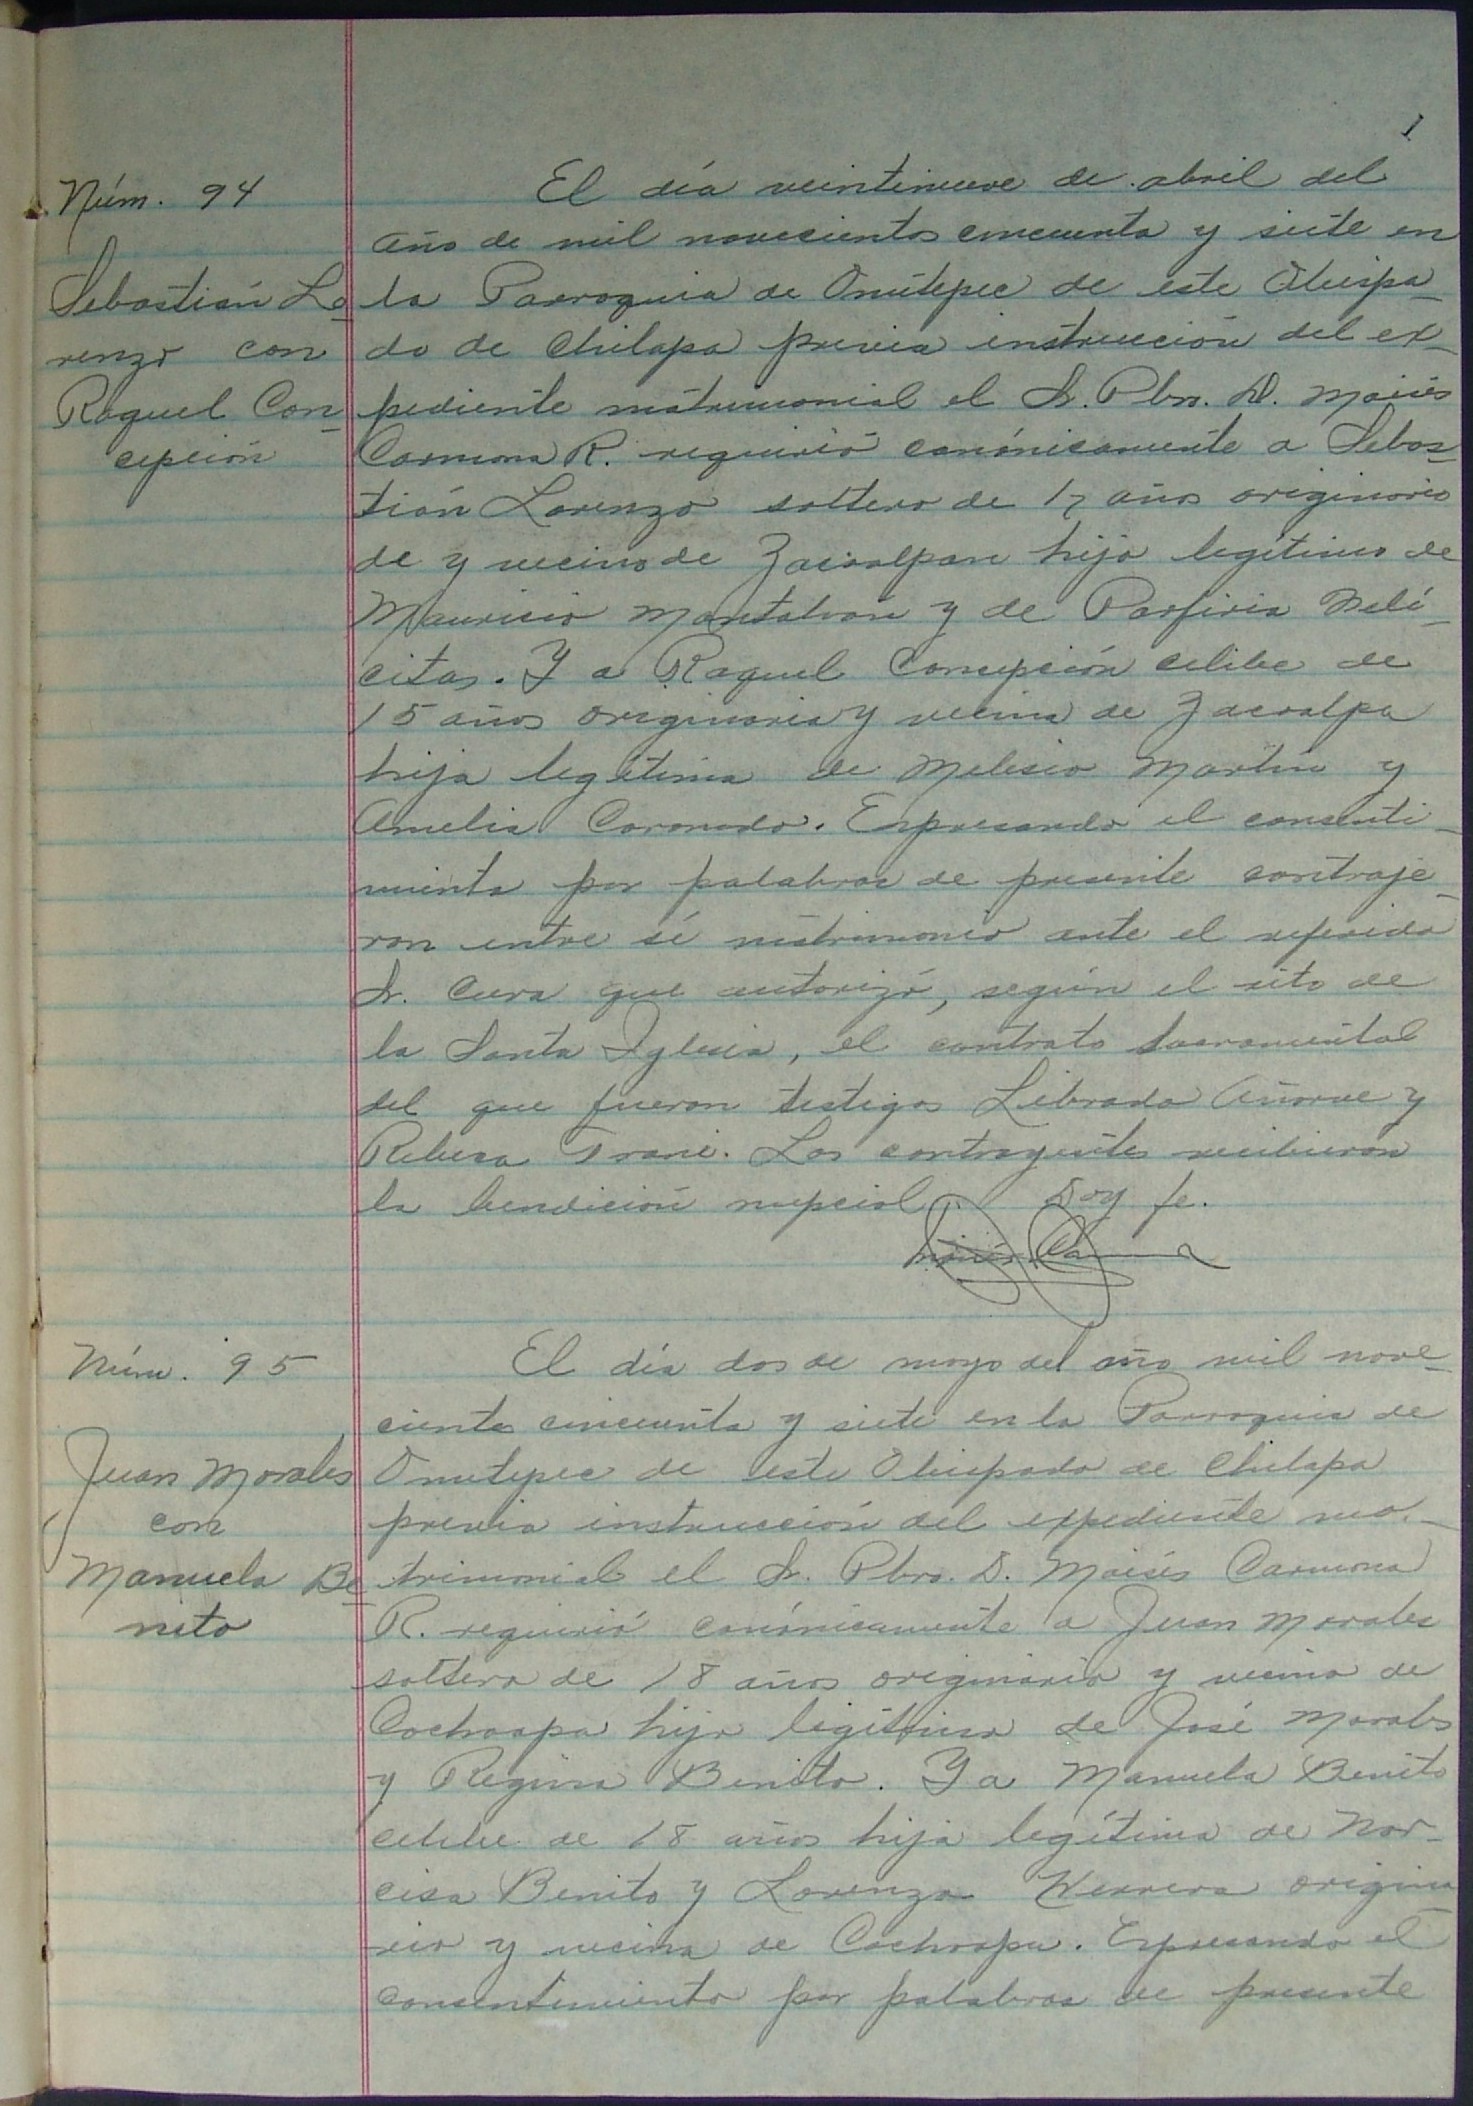 1
Núm. 94
Sebastián Lo
renzo con
Raquel Con-
cepción
El día veintinueve de abril del
año de mil novecientos cincuenta y siete en
la Parroquia de Ometepec de este Obispa-
do de Chilapa previa instrucción del ex-
pediente matrimonial el Sr. Pbro. D. Moisés
Carmona R. requirió canónicamente a Sebas-
tián Lorenzo soltero de 17 años originario
de y vecino de Zacoalpan hijo legítimo de
Mauricio Montalván y de Porfiria Feli-
citas. Y a Raquel Concepción célibe de
15 años originaria y vecina de Zacoalpa
hija legítima de Melesio Martín y
Amelia Coronado. Expresando el consenti-
miento por palabras de presente contraje-
ron entre sí matrimonio ante el referido
Sr. Cura que autorizó, según el rito de
la Santa Iglesia, el contrato sacramental
del que fueron testigos Librado Añorve y
Rebeca Trani. Los contrayentes recibieron
la bendición nupcial. Doy fe.
Moisés Carmona
Núm. 95
Juan Morales
con
Manuela Be
nito
El día dos de mayo del año mil nove-
cientos cincuenta y siete en la Parroquia de
Ometepec de este Obispado de Chilapa
previa instrucción del expediente ma-
trimonial el Sr. Pbro. D. Moisés Carmona
R. requirió canónicamente a Juan Morales
soltero de 18 años originario y vecino de
Cochoapa hijo legítimo de José Morales
y Regina Benito. Y a Manuela Benito
célibe de 18 años hija legítima de Nar-
cisa Benito y Lorenzo Herrera origina
ria y vecina de Cochoapa. Expresando el
consentimiento por palabras de presente